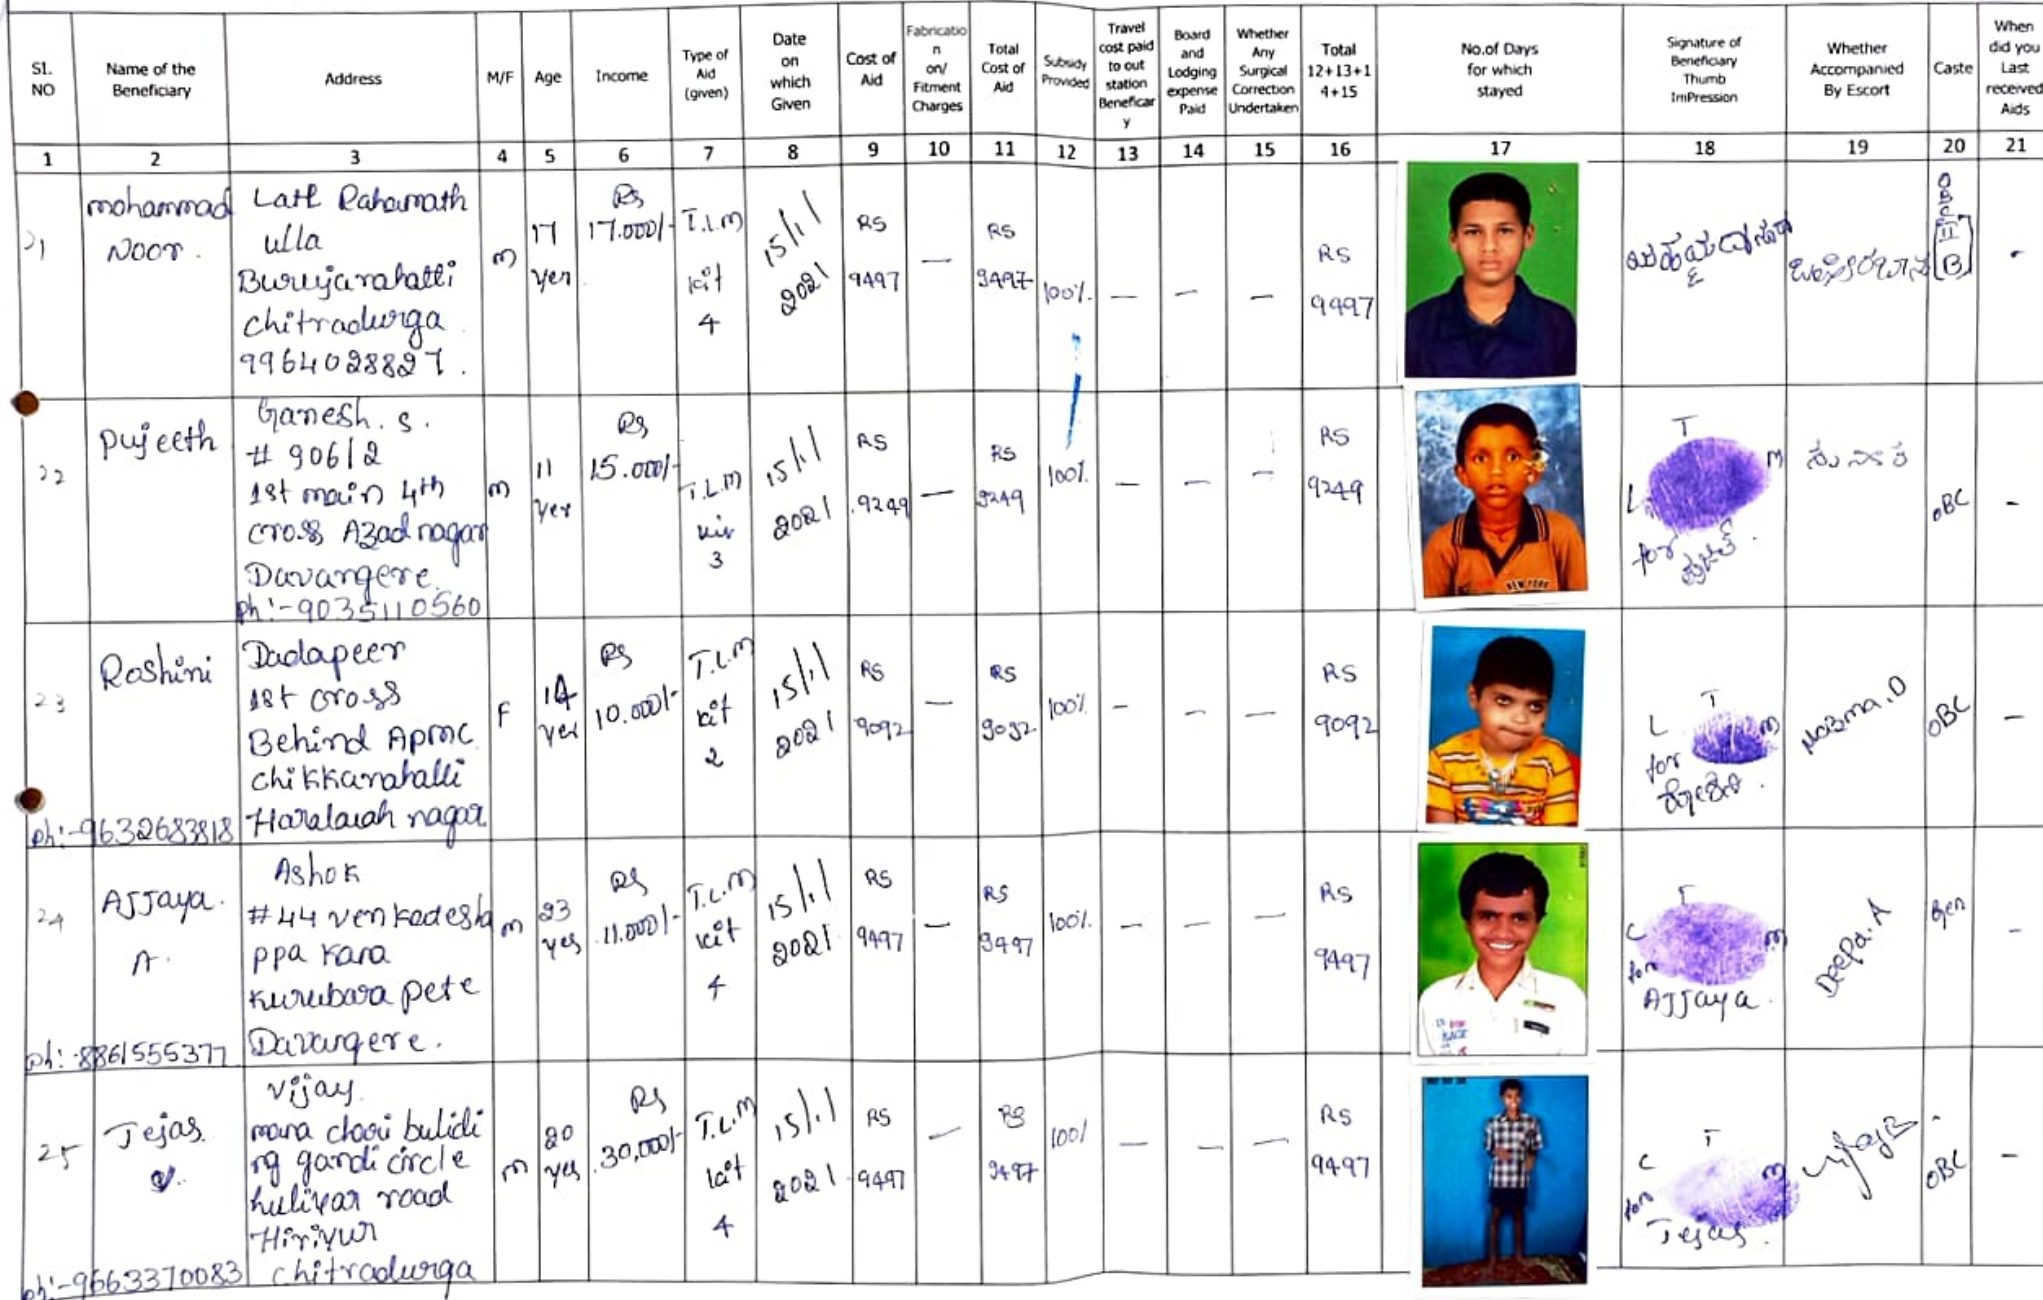 Sl. NO
Name of the Beneficiary
Address
M/F
Age
Income
Type of Aid (given)
Date on which Given
Cost of Aid
Fabricatio n on/ Fitment Charges
Total Cost of Aid
Subsidy Provided
Travel cost paid to out station Beneficar y
Board and Lodging expense Paid
Whether Any Surgical Correction Undertaken
Total 12+13+1 4+15
No.of Days for which stayed
Signature of Beneficiary Thumb ImPression
Whether Accompanied By Escort
Caste
When did you Last received Aids
1 2 3 4 5 6 7 8 9 10 11 12 13 14 15 16 17 18 19 20 21
21
mohammad
Noor.
Latl Rahamath
ulla
Burujanahatti
chitradurga
9964028827.
m
17
yer
Rs
17.000/-
T.L.M
kit
4
15/1/
2021
RS
9497
—
RS
9497
100%.
—
—
—
RS
9497
ಮಹಮ್ಮದ್ ನೂರ್
OBC
[B]
-
22
pujeeth
Ganesh. S.
# 906/2
1st main 4th
cross Azad nagar
Davangere.
ph:-9035110560
m
11
yer
Rs
15.000/-
T.L.M
kit
3
15/1/
2021
RS
.9249
—
RS
9249
100%.
—
—
—
RS
9249
T
L
m
for
NEW YORK
OBC
-
23
Roshini
ph:-9632683818
Dadapeer
1st cross
Behind Apmc
chikkanahalli
Haralaiah nagar
F
14
yer
Rs
10.000/-
T.L.M
kit
2
15/1/
2021
RS
9092
—
RS
9092
100%.
—
—
—
RS
9092
L T m
for
ರೋಶಿನಿ.
Nazma.D
OBC
—
24
AJJaya.
A.
ph:-8861555377
Ashok
#44 venkadesha
ppa kara
kurubara pete
Davangere.
m
23
yes
Rs
11.000/-
T.L.M
kit
4
15/1/
2021
RS
9497
—
RS
9497
100%.
—
—
—
RS
9497
T
L m
for
AJJaya.
Deepa.A
Gen
-
25
Tejas.
V.
ph:-9663370083
Vijay.
mara choori bulidi
ng gandi circle
huliyar road
Hiriyur
chitradurga
m
20
yes
Rs
30,000/-
T.L.M
kit
4
15/1/
2021
RS
9497
—
RS
9497
100%
—
—
—
RS
9497
T
L m
for
Tejas.
VijayB
OBC
—